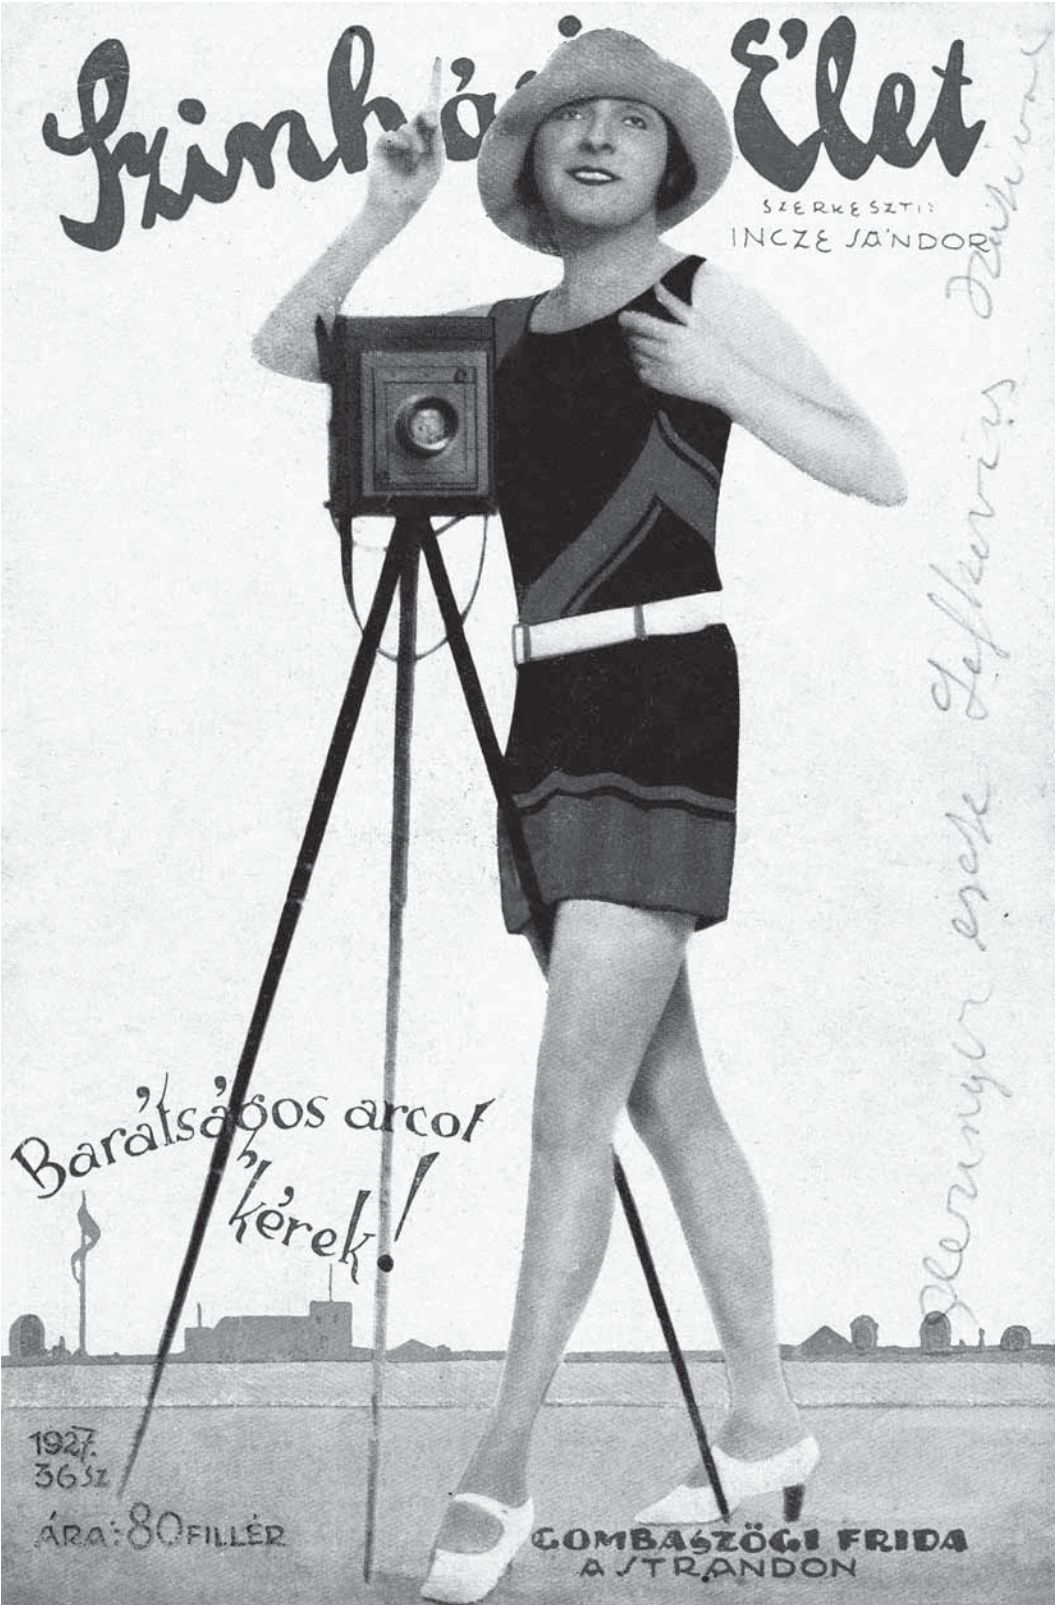 Szinházi Élet
SZERKESZTI:
INCZE SÁNDOR
Barátságos arcot
kérek!
1927.
36 SZ
ÁRA: 80 FILLÉR
GOMBASZÖGI FRIDA
A STRANDON